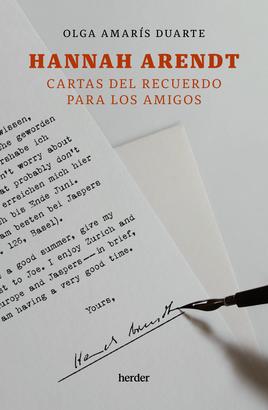 OLGA AMARÍS DUARTE
HANNAH ARENDT
CARTAS DEL RECUERDO
PARA LOS AMIGOS
wissen,
he geworden
rshabe ich
n't worry about
at probably don't
erreichen mich hier
h bis Ende Juni.
am besten bei Jaspers
. 126, Basel).
a good summer, give my
st to Joe. I enjoy Zurich and
urope and Jaspers---in brief,
am having a very good time.
Yours,
Hannah Arendt
herder